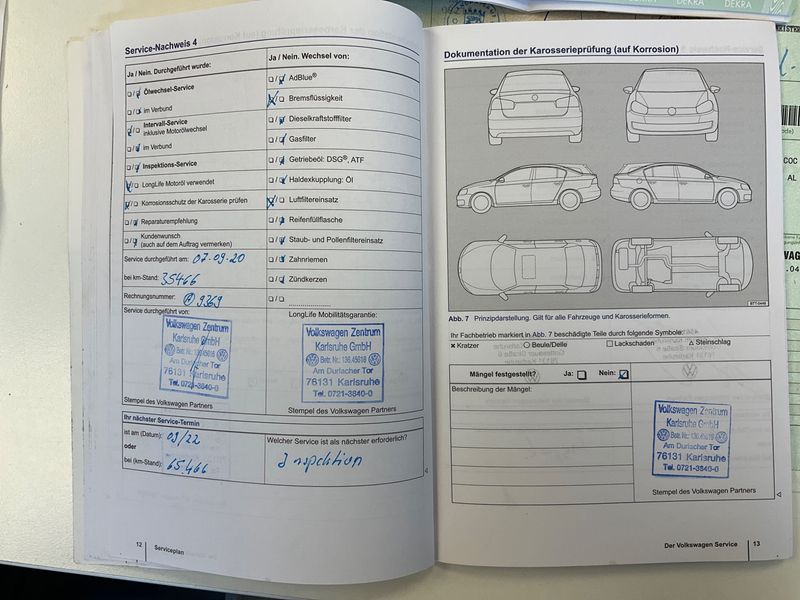 Service-Nachweis 4
Ja / Nein. Durchgeführt wurde:
Ölwechsel-Service
im Verbund
Intervall-Service
inklusive Motorölwechsel
im Verbund
Inspektions-Service
LongLife Motoröl verwendet
Korrosionsschutz der Karosserie prüfen
Reparaturempfehlung
Kundenwunsch
(auch auf dem Auftrag vermerken)
Service durchgeführt am: 07.09.20
bei km-Stand: 35466
Rechnungsnummer: 9369
Service durchgeführt von:
Volkswagen Zentrum
Karlsruhe GmbH
Betr. Nr.: 136.45618
Am Durlacher Tor
76131 Karlsruhe
Tel. 0721-3840-0
Stempel des Volkswagen Partners
Ja / Nein. Wechsel von:
AdBlue®
Bremsflüssigkeit
Dieselkraftstofffilter
Gasfilter
Getriebeöl: DSG®, ATF
Haldexkupplung: Öl
Luftfiltereinsatz
Reifenfüllflasche
Staub- und Pollenfiltereinsatz
Zahnriemen
Zündkerzen
LongLife Mobilitätsgarantie:
Volkswagen Zentrum
Karlsruhe GmbH
Betr. Nr.: 136.45618
Am Durlacher Tor
76131 Karlsruhe
Tel. 0721-3840-0
Stempel des Volkswagen Partners
Ihr nächster Service-Termin
ist am (Datum): 09/22
oder
bei (km-Stand): 65.466
Welcher Service ist als nächster erforderlich?
Inspektion
12 Serviceplan
Dokumentation der Karosserieprüfung (auf Korrosion)
BTT-0448
Abb. 7 Prinzipdarstellung. Gilt für alle Fahrzeuge und Karosserieformen.
Ihr Fachbetrieb markiert in Abb. 7 beschädigte Teile durch folgende Symbole:
Kratzer Beule/Delle Lackschaden Steinschlag
Mängel festgestellt? Ja: Nein:
Beschreibung der Mängel:
Volkswagen Zentrum
Karlsruhe GmbH
Betr. Nr.: 136.45618
Am Durlacher Tor
76131 Karlsruhe
Tel. 0721-3840-0
Stempel des Volkswagen Partners
Der Volkswagen Service 13
DEKRA DEKRA
COC
AL